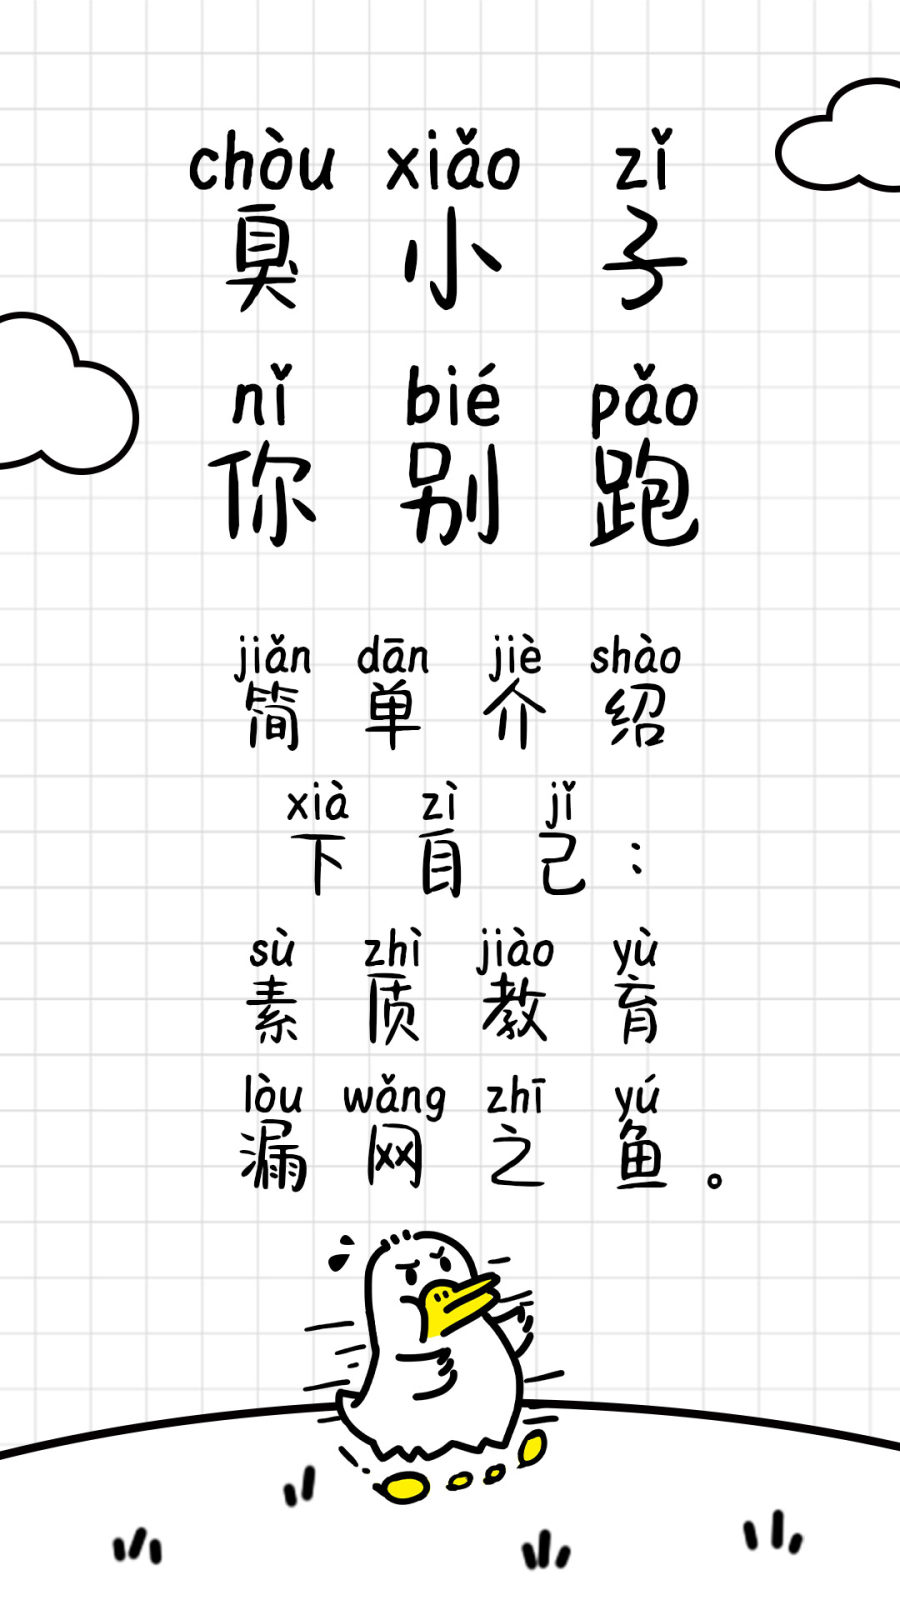 chòu xiǎo zǐ
臭小子
nǐ bié pǎo
你别跑
jiǎn dān jiè shào
简单介绍
xià zì jǐ
下自己：
sù zhì jiào yù
素质教育
lòu wǎng zhī yú
漏网之鱼。